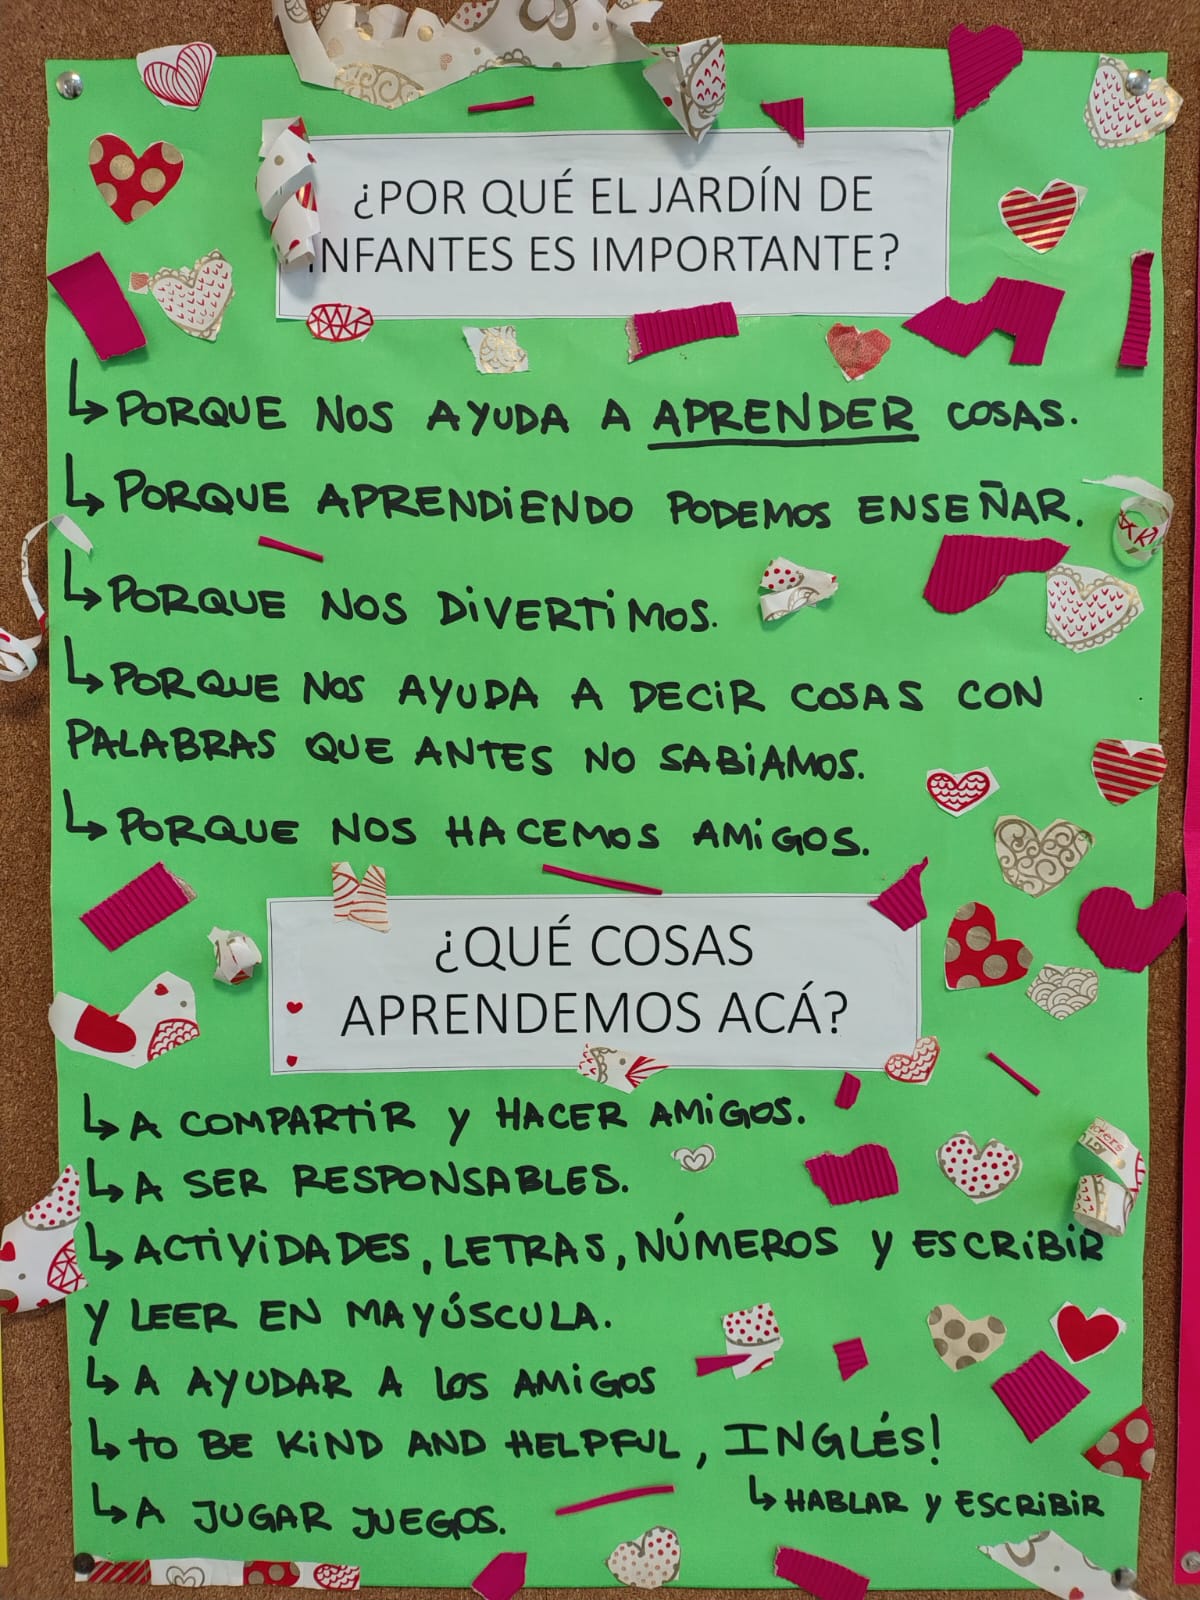 ¿POR QUÉ EL JARDÍN DE
INFANTES ES IMPORTANTE?
↳ PORQUE NOS AYUDA A APRENDER COSAS.
↳ PORQUE APRENDIENDO PODEMOS ENSEÑAR.
↳ PORQUE NOS DIVERTIMOS.
↳ PORQUE NOS AYUDA A DECIR COSAS CON
PALABRAS QUE ANTES NO SABIAMOS.
↳ PORQUE NOS HACEMOS AMIGOS.
¿QUÉ COSAS
APRENDEMOS ACÁ?
↳ A COMPARTIR Y HACER AMIGOS.
↳ A SER RESPONSABLES.
↳ ACTIVIDADES, LETRAS, NÚMEROS Y ESCRIBIR
Y LEER EN MAYÚSCULA.
↳ A AYUDAR A LOS AMIGOS
↳ TO BE KIND AND HELPFUL, INGLÉS!
↳ HABLAR Y ESCRIBIR
↳ A JUGAR JUEGOS.